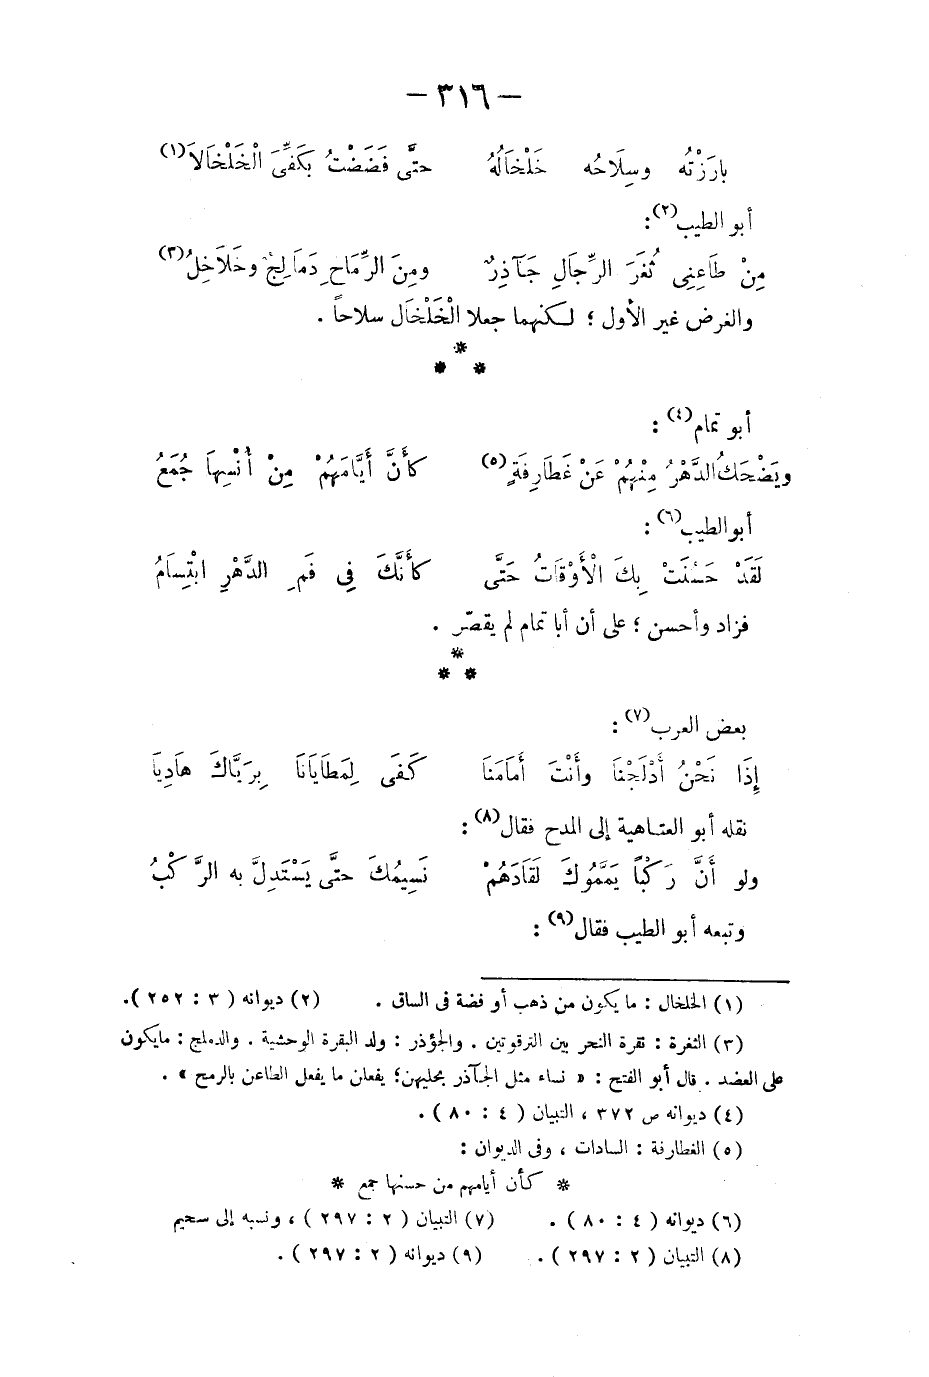 — ٣١٦ —
بارَزْتُه وسِلَاحُه خَلْخَالُهُ حتَّى فَضَضْتُ بِكَفِّىَ الْخَلْخَالاَ(١)
أبو الطيب(٢) :
مِنْ طَاعِنِى ثُغَرَ الرِّجَالِ جَآذِرٌ ومِنَ الرِّمَاحِ دَمَالِجٌ وخَلَاخِلُ(٣)
والغرض غير الأول ؛ لكنهما جعلا الْخَلْخَال سلاحاً .
*
* *
أبو تمام(٤) :
ويَضْحَكُ الدَّهْرُ مِنْهُمْ عَنْ غَطَارِفَةٍ(٥) كأَنَّ أَيَّامَهُمْ مِنْ أُنْسِهَا جُمَعُ
أبو الطيب(٦) :
لَقَدْ حَسُنَتْ بِكَ الْأَوْقَاتُ حَتَّى كأَنَّكَ فِى فَمِ الدَّهْرِ ابْتِسَامُ
فزاد وأحسن ؛ على أن أبا تمام لم يقصّر .
*
* *
بعض العرب(٧) :
إِذَا نَحْنُ أَدْلَجْنَا وأَنْتَ أَمَامَنَا كَفَى لِمَطَايَانَا بِرَيَّاكَ هَادِيَا
نقله أبو العتاهية إلى المدح فقال(٨) :
ولو أَنَّ رَكْبًا يَمَّمُوكَ لَقَادَهُمْ نَسِيمُكَ حتَّى يَسْتَدِلَّ به الرَّكْبُ
وتبعه أبو الطيب فقال(٩) :
(١) الخلخال : ما يكون من ذهب أو فضة فى الساق . (٢) ديوانه ( ٣ : ٢٥٢ ).
(٣) الثغرة : نقرة النحر بين الترقوتين . والجؤذر : ولد البقرة الوحشية . والدملج : مايكون
على العضد . قال أبو الفتح : « نساء مثل الجآذر بحليهن؛ يفعلن ما يفعل الطاعن بالرمح » .
(٤) ديوانه ص ٣٧٢ ، التبيان ( ٤ : ٨٠ ) .
(٥) الغطارفة : السادات ، وفى الديوان :
* كأن أيامهم من حسنها جمع *
(٦) ديوانه ( ٤ : ٨٠ ) . (٧) التبيان ( ٢ : ٢٩٧ ) ، ونسبه إلى سحيم
(٨) التبيان ( ٢ : ٢٩٧ ) . (٩) ديوانه ( ٢ : ٢٩٧ ) .